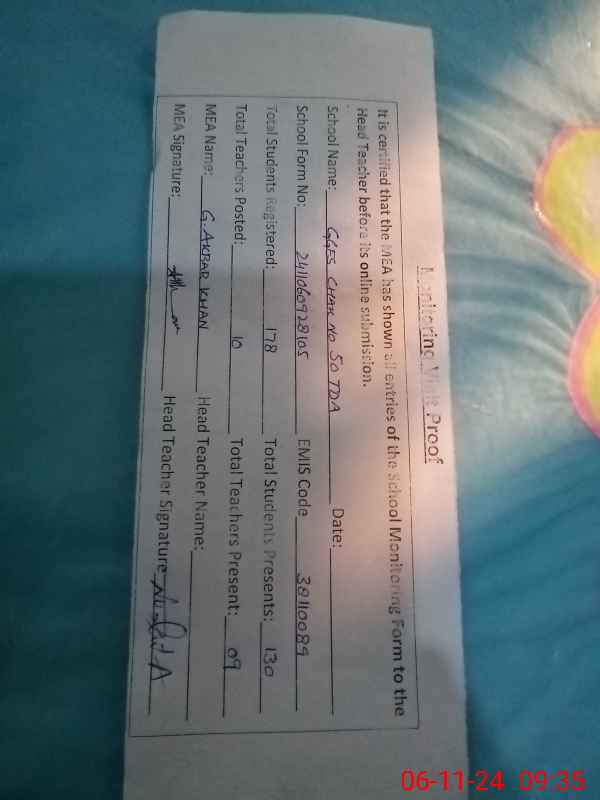 Monitoring Visit Proof
It is certified that the MEA has shown all entries of the School Monitoring Form to the
Head Teacher before its online submission.
School Name: GGES CHAK NO 50 TDA Date:
School Form No: 2411060928105 EMIS Code 38110089
Total Students Registered: 178 Total Students Presents: 130
Total Teachers Posted: 10 Total Teachers Present: 09
MEA Name: G. AKBAR KHAN Head Teacher Name:
MEA Signature: Head Teacher Signature
06-11-24 09:35